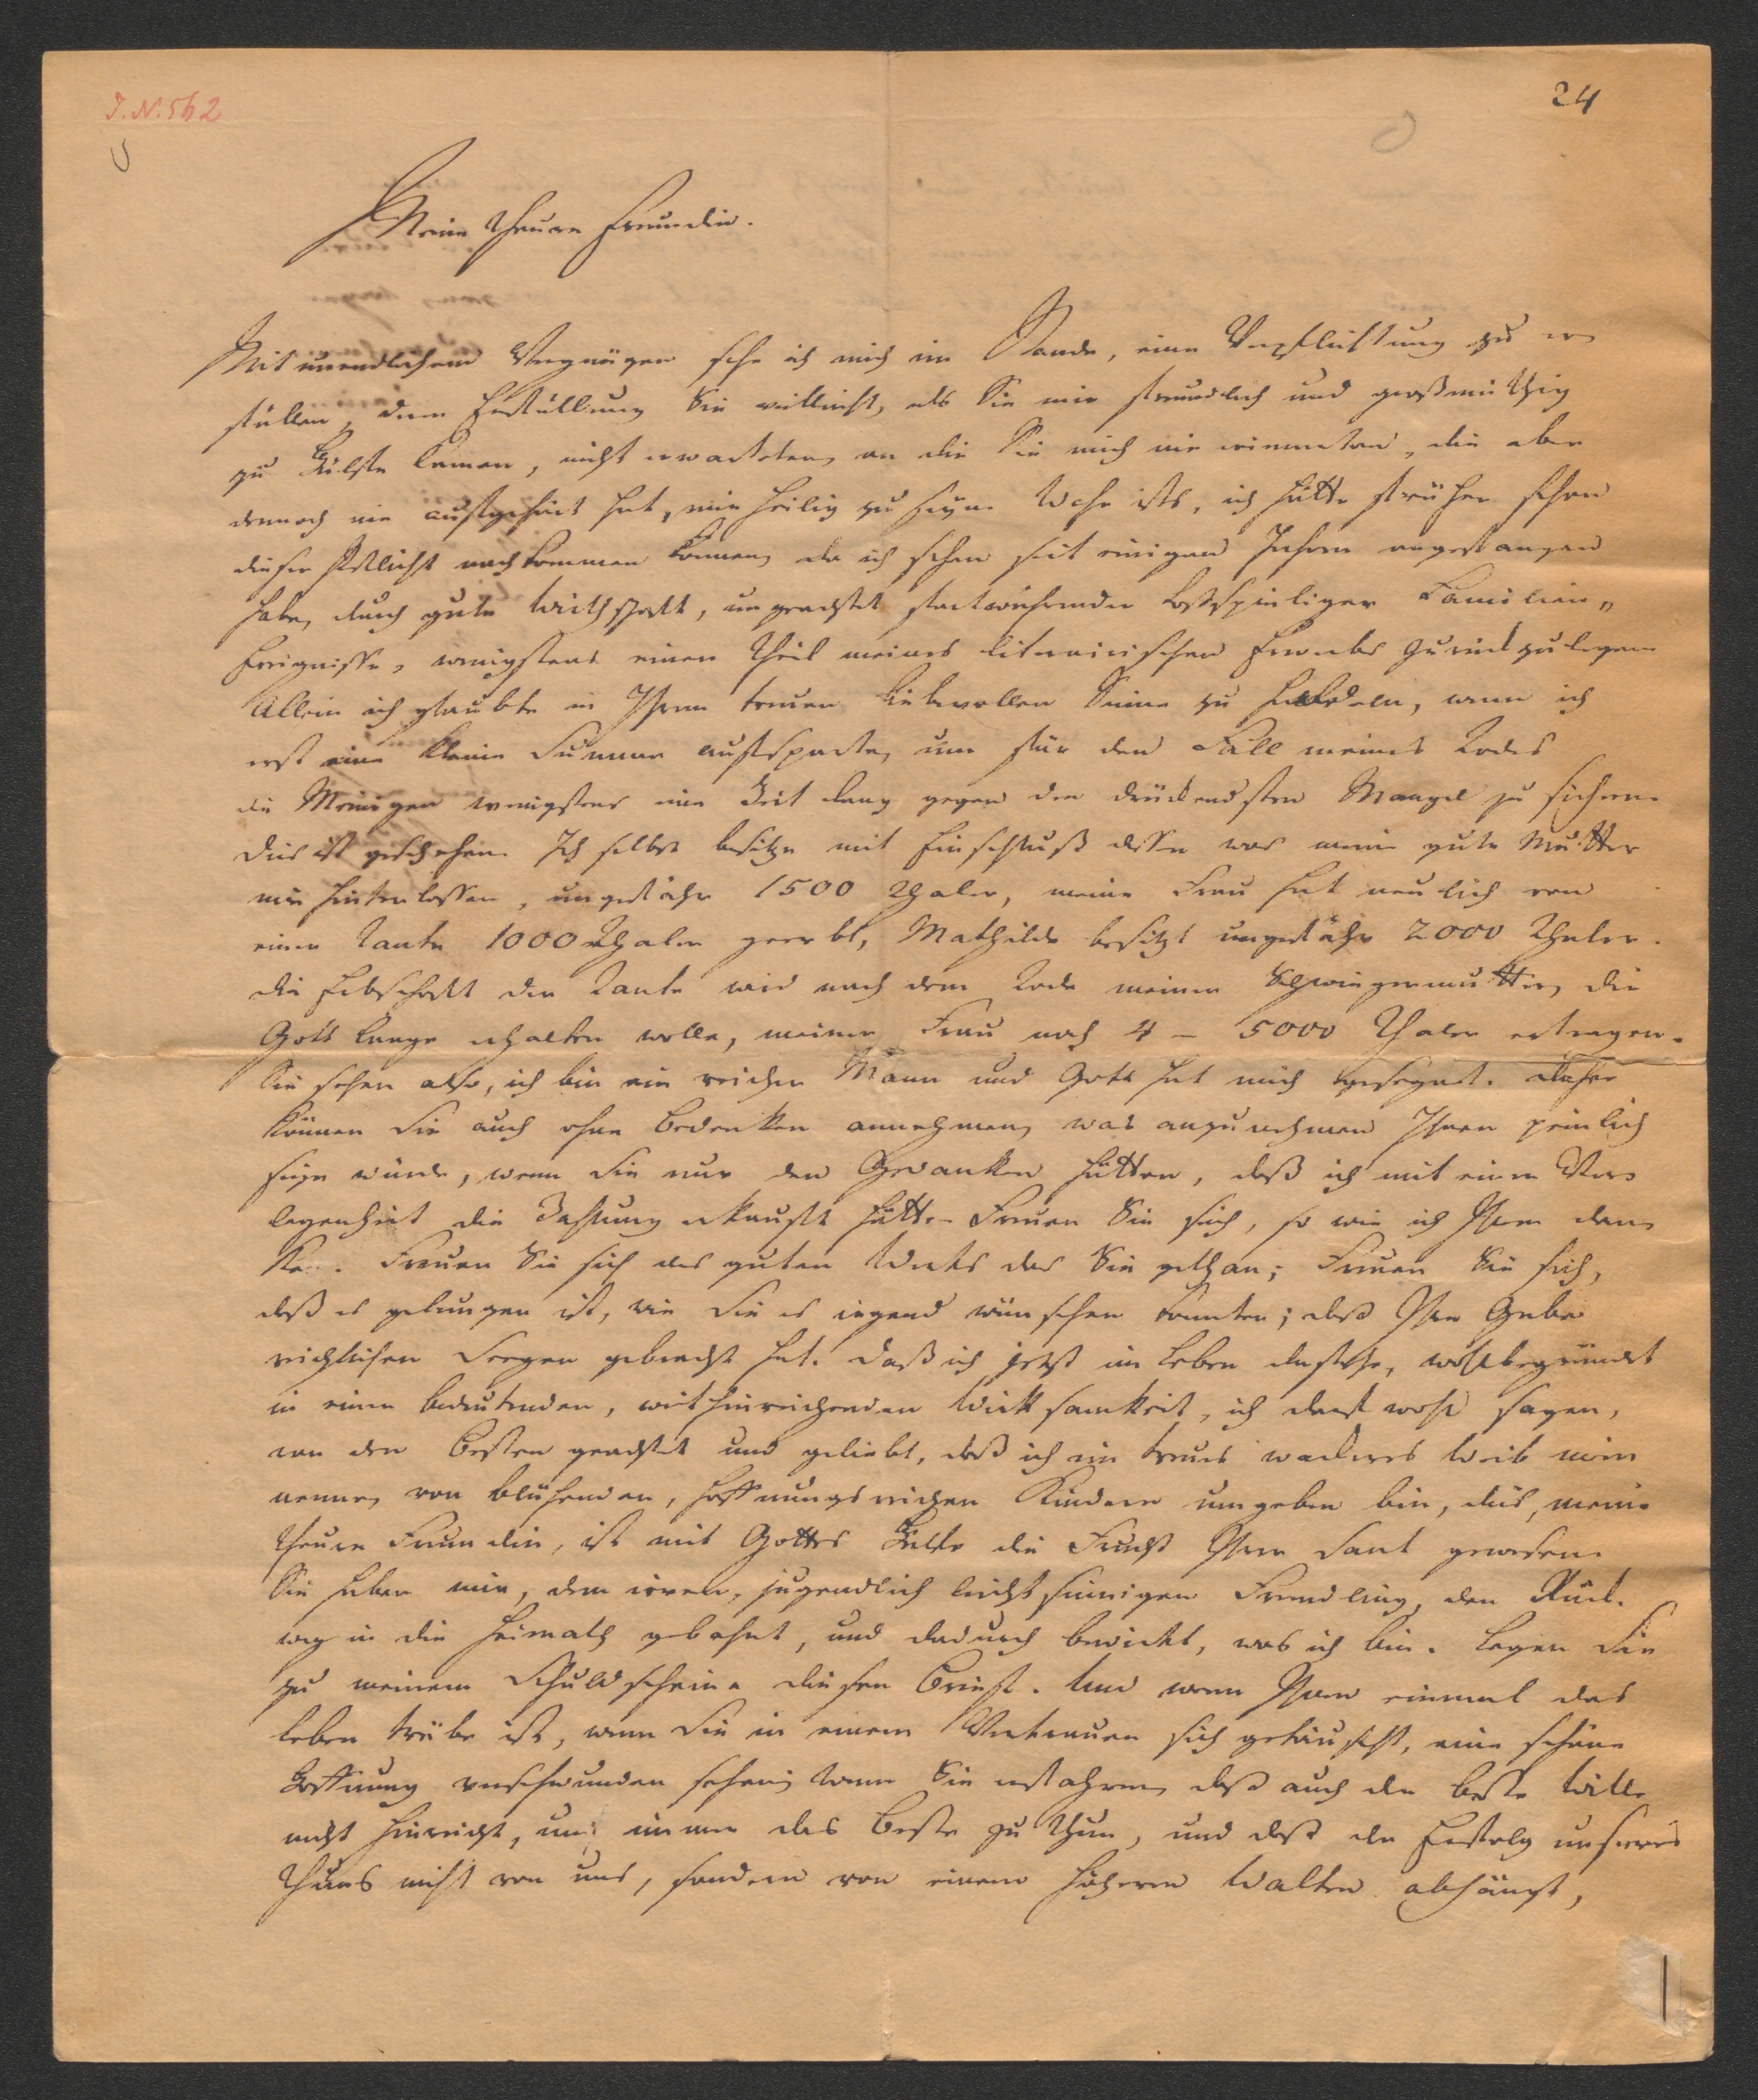 J. N. 562
24
Meine theure Freundin.
Mit unendlichem Vergnügen sehe ich mich im Stande, eine Verpflichtung zu er
füllen, deren Erfüllung Sie vielleicht, als Sie mir freundlich und großmüthig
zu Hülfe kamen, nicht erwarteten, an die Sie mich nie erinnerten, die aber
dennoch nie aufgehört hat, mir heilig zu seyn. Wahr ists, ich hätte früher schon
dieser Pflicht nachkommen können, da ich schon seit einigen Jahren angefangen
habe, durch gute Wirthschaft, ungeachtet fortwährender kostspieliger Familien„
Ereignisse, wenigstens einen Theil meines literarischen Erwerbs zurückzulegen.
Allein ich glaubte in Ihrem treuen liebevollen Sinne zu handeln, wenn ich
erst eine kleine Summe aufsparte, um für den Fall meines Todes
die Meinigen wenigstens eine Zeit lang gegen den drückendsten Mangel zu sichern.
Dies ist geschehen. Ich selbst besitze mit Einschluß dessen was meine gute Mutter
mir hinterlassen, ungefähr 1500 Thaler, meine Frau hat neulich von
einer Tante 1000 Thaler geerbt, Mathilde besitzt ungefähr 2000 Thaler.
die Erbschaft der Tante wird nach dem Tode meiner Schwiegermutter, die
Gott lange erhalten wolle, meiner Frau noch 4 – 5000 Thaler ertragen.
Sie sehen also, ich bin ein reicher Mann und Gott hat mich gesegnet. Daher
können Sie auch ohne Bedenken annehmen, was anzunehmen Ihnen peinlich
seyn würde, wenn Sie nur den Gedanken hätten, daß ich mit einer Ver„
legenheit die Zahlung erkauft hätte. Freuen Sie sich, so wie ich Ihnen dan„
ke. Freuen Sie sich des guten Werks das Sie gethan; Freuen Sie sich,
daß es gelungen ist, wie Sie es irgend wünschen konnten; daß Ihre Gabe
reichlichen Seegen gebracht hat. Daß ich jetzt im Leben dastehe, wohlbegründet
in einer bedeutenden, weithinreichenden Wirksamkeit, ich darf wohl sagen,
von den Besten geachtet und geliebt, daß ich ein treues wackeres Weib mein
nenne, von blühenden, hoffnungsreichen Kindern umgeben bin, dies, meine
theure Freundin, ist mit Gottes Hülfe die Frucht Ihrer Saat gewesen.
Sie haben mir, dem irren, jugendlich leichtsinnigen Fremdling, den Rück„
weg in die Heimath gebahnt, und dadurch bewirkt, was ich bin. Legen Sie
zu meinem Schuldscheine diesen Brief. Und wenn Ihnen einmal das
Leben trübe ist, wenn Sie in einem Vertrauen sich getäuscht, eine schöne
Hoffnung verschwunden sehen; wenn Sie erfahren, daß auch der beste Wille
nicht hinreicht, um immer das Beste zu thun, und daß der Erfolg unseres
Thuns nicht von uns, sondern von einem höheren Walten abhängt,